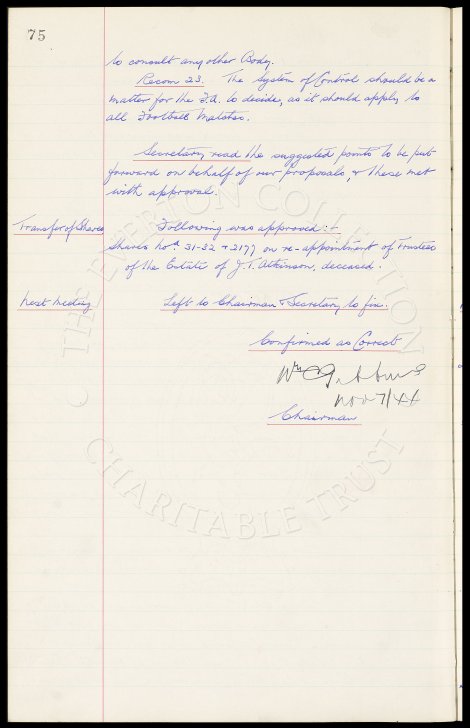 75
to consult any other Body.
Recom 23. The System of Control should be a
matter for the F.A. to decide, as it should apply to
all Football Matches.
Secretary read the suggested points to be put
forward on behalf of our proposals, & these met
with approval.
Transfer of Shares Following was approved :-
Shares nos. 31-32 & 2177 on re-appointment of Trustees
of the Estate of J. T. Atkinson, deceased.
Next Meeting Left to Chairman & Secretary to fix.
Confirmed as Correct
Wm C Gibbins
Nov 7/44
Chairman
THE EVERTON COLLECTION
CHARITABLE TRUST